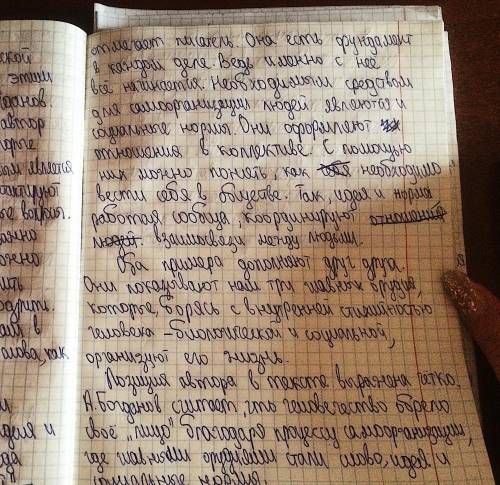 ской
этими
данов.
автор
является
же вопрос.
ажно
ожно
ить
ам в
слова, как
и
идея и
отмечает писатель. Она есть фундамент
в каждом деле. Ведь именно с неё
всё начинается. Необходимым средством
для самоорганизации людей являются и
социальные нормы. Они оформляют
отношения в коллективе. С помощью
них можно понять, как необходимо
вести себя в обществе. Так, идея и норма
работая сообща, координируют отношения
людей взаимосвязи между людьми.
Оба примера дополняют друг друга.
Они показывают нам три главных орудия,
которые, борясь с внутренней стихийностью
человека - биологической и социальной,
организуют его жизнь.
Позиция автора в тексте выражена чётко.
А.Богданов считает, что человечество обрело
своё „лицо" благодаря процессу самоорганизации,
где главными орудиями стали слово, идея и
социальные нормы.